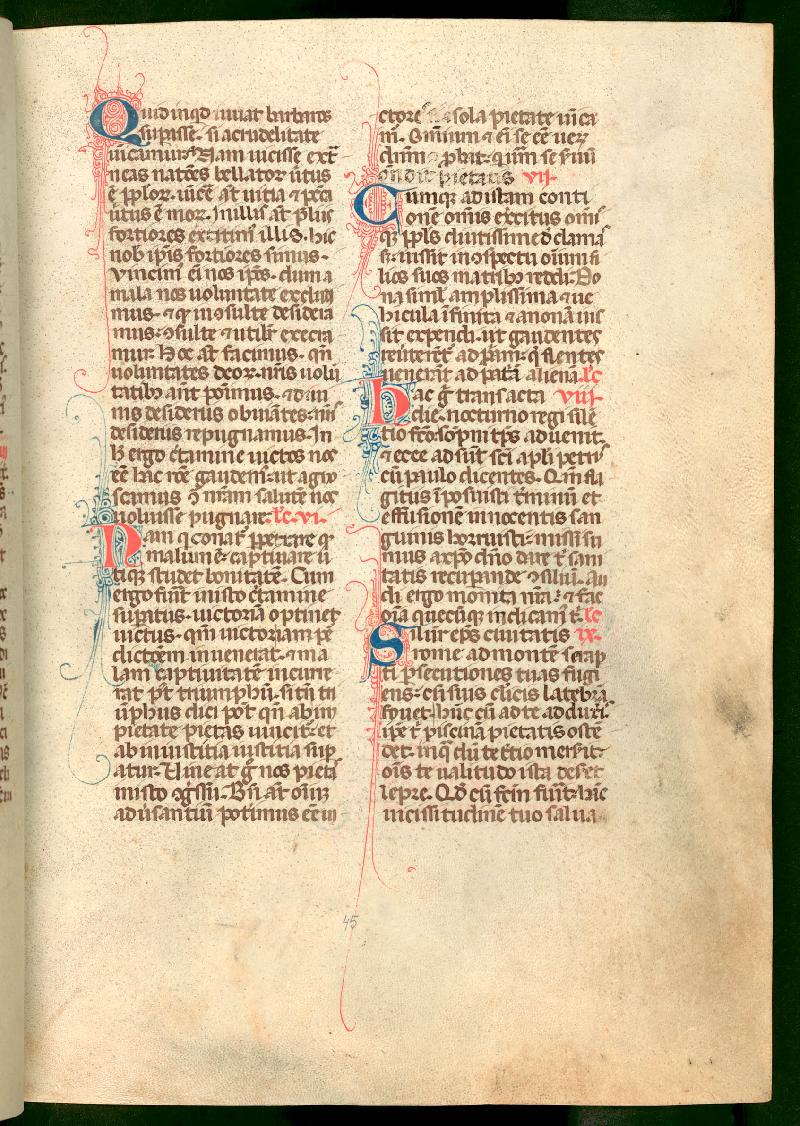 Quid inqd iuuat barbaros
supasse. si a crudelitate
uicamur. Nam uicisse ext
neas natoēs bellator uirtus
ē pplor. uīcē āt uitia ⁊ pcā
uirtus ē mor. In illis āt plijs
fortiores extitimꝰ illis. hic
nob ipīs fortiores sumus.
Vincimꝰ eī nos ipōs. dum a
mala nos uoluntate excludi
mus. ⁊ q inꝯsulte desidera
mus. ꝯsulte ⁊ utilr execra
mur. Hoc āt facimus. qn
uoluntates deor. nris uolū
tatibꝰ
nis desiderijs obuiātes. nris
desiderijs repugnamus. In
h ergo ctamine uictos nos
eē hac rōe gaudem. ut agno
scamus ꝯ nram salutē nos
uoluisse pugnare. lc. vi.
Nam q conat ppetrare q
malum ē. captiuare u
tiq studet bonitatē. Cum
ergo fuīt in isto ctamine
supatus. uictoriā optinet
uictus. qm uictoriam pe
dictoem inuenerat. ⁊ ma
lam captiuitatē incurre
rat pt triumphū. si tn tri
ūphus dici pot qn ab im
pietate pietas uincit. et
ab iniustitia iustitia sup
atur. Vincat g nos pietas
in isto ꝯgssu. Bn āt oīuꝫ
aduersantiū potimus eē ui
ctores si a sola pietate uīca
m. Omnium ⁊ ei se eē ueꝝ
dnm ꝯpbat. qui se suū
ondit pietatis vij.
Cumque ad istam conti
onē omīs exercitus omīs
q ppls diutissime ꝺclamas
s. iussit in ꝯspectu oīum fi
lios suos matribꝫ reddi. Do
na siml amplissima ⁊ ue
hicula īfinita ⁊ anonā ius
sit expendi. ut gaudentes
reuterēt ad pam. q flentes
uenerāt ad patā alienā. lc
Hac g transacta viij.
die. nocturno regi silē
tio fco. sopni tps aduenit.
⁊ ecce adsunt scī apli petrꝰ
cū paulo dicentes. Qm fla
gitijs īposuisti tminū et
effusionē innocentis san
guinis horruisti. missi su
mus a xpo dno dare t. san
tatis recupande ꝯsiliū. Au
di ergo monita nra. ⁊ fac
oīa quecūq indicam t. lc
Siluer eps ciuitatis ix.
rome ad montē serap
ti psecutiones tuas fugi
ens. cū suis clicis latebrā
fouet. hūc cū ad te adduxis.
ipe t. piscinā pietatis oste
det. in q dū te tertio mersit.
oīs te ualitudo ista deset
lepre. Qd cū fcm fuit. hāc
uicissitudinē tuo salua
45